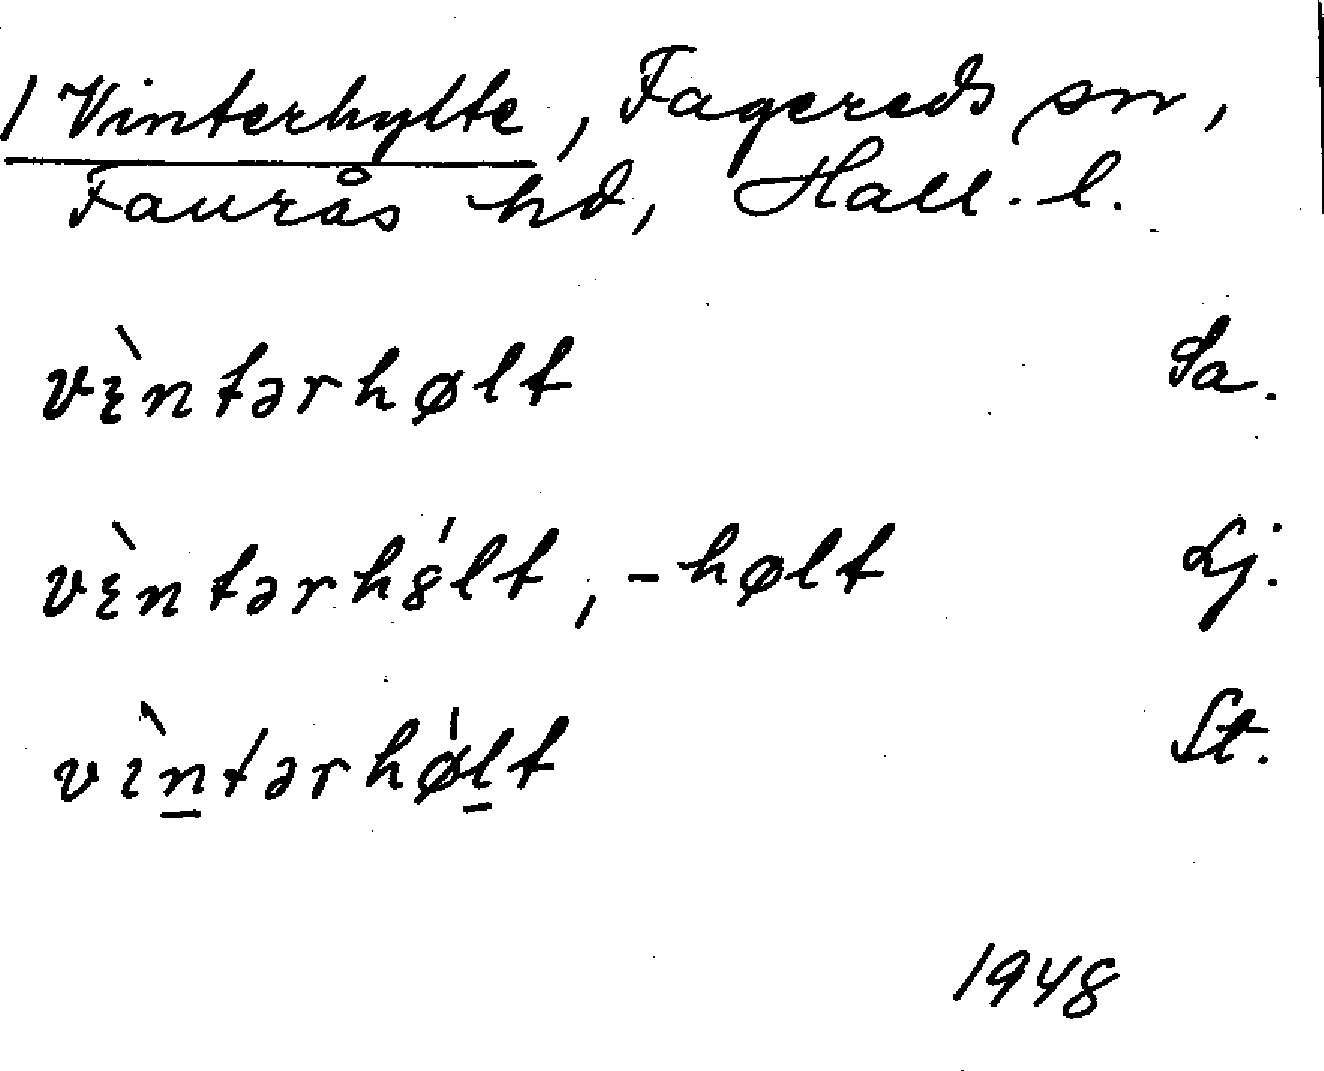 1 Vinterhylte, Fagereds sn,
Faurås hd, Hall. l.
vɩ̀ntərhølt Sa.
vɩ̀ntərh8́lt, -hølt Lj.
vɩ̀n̲tərhǿl̲t St.
1948